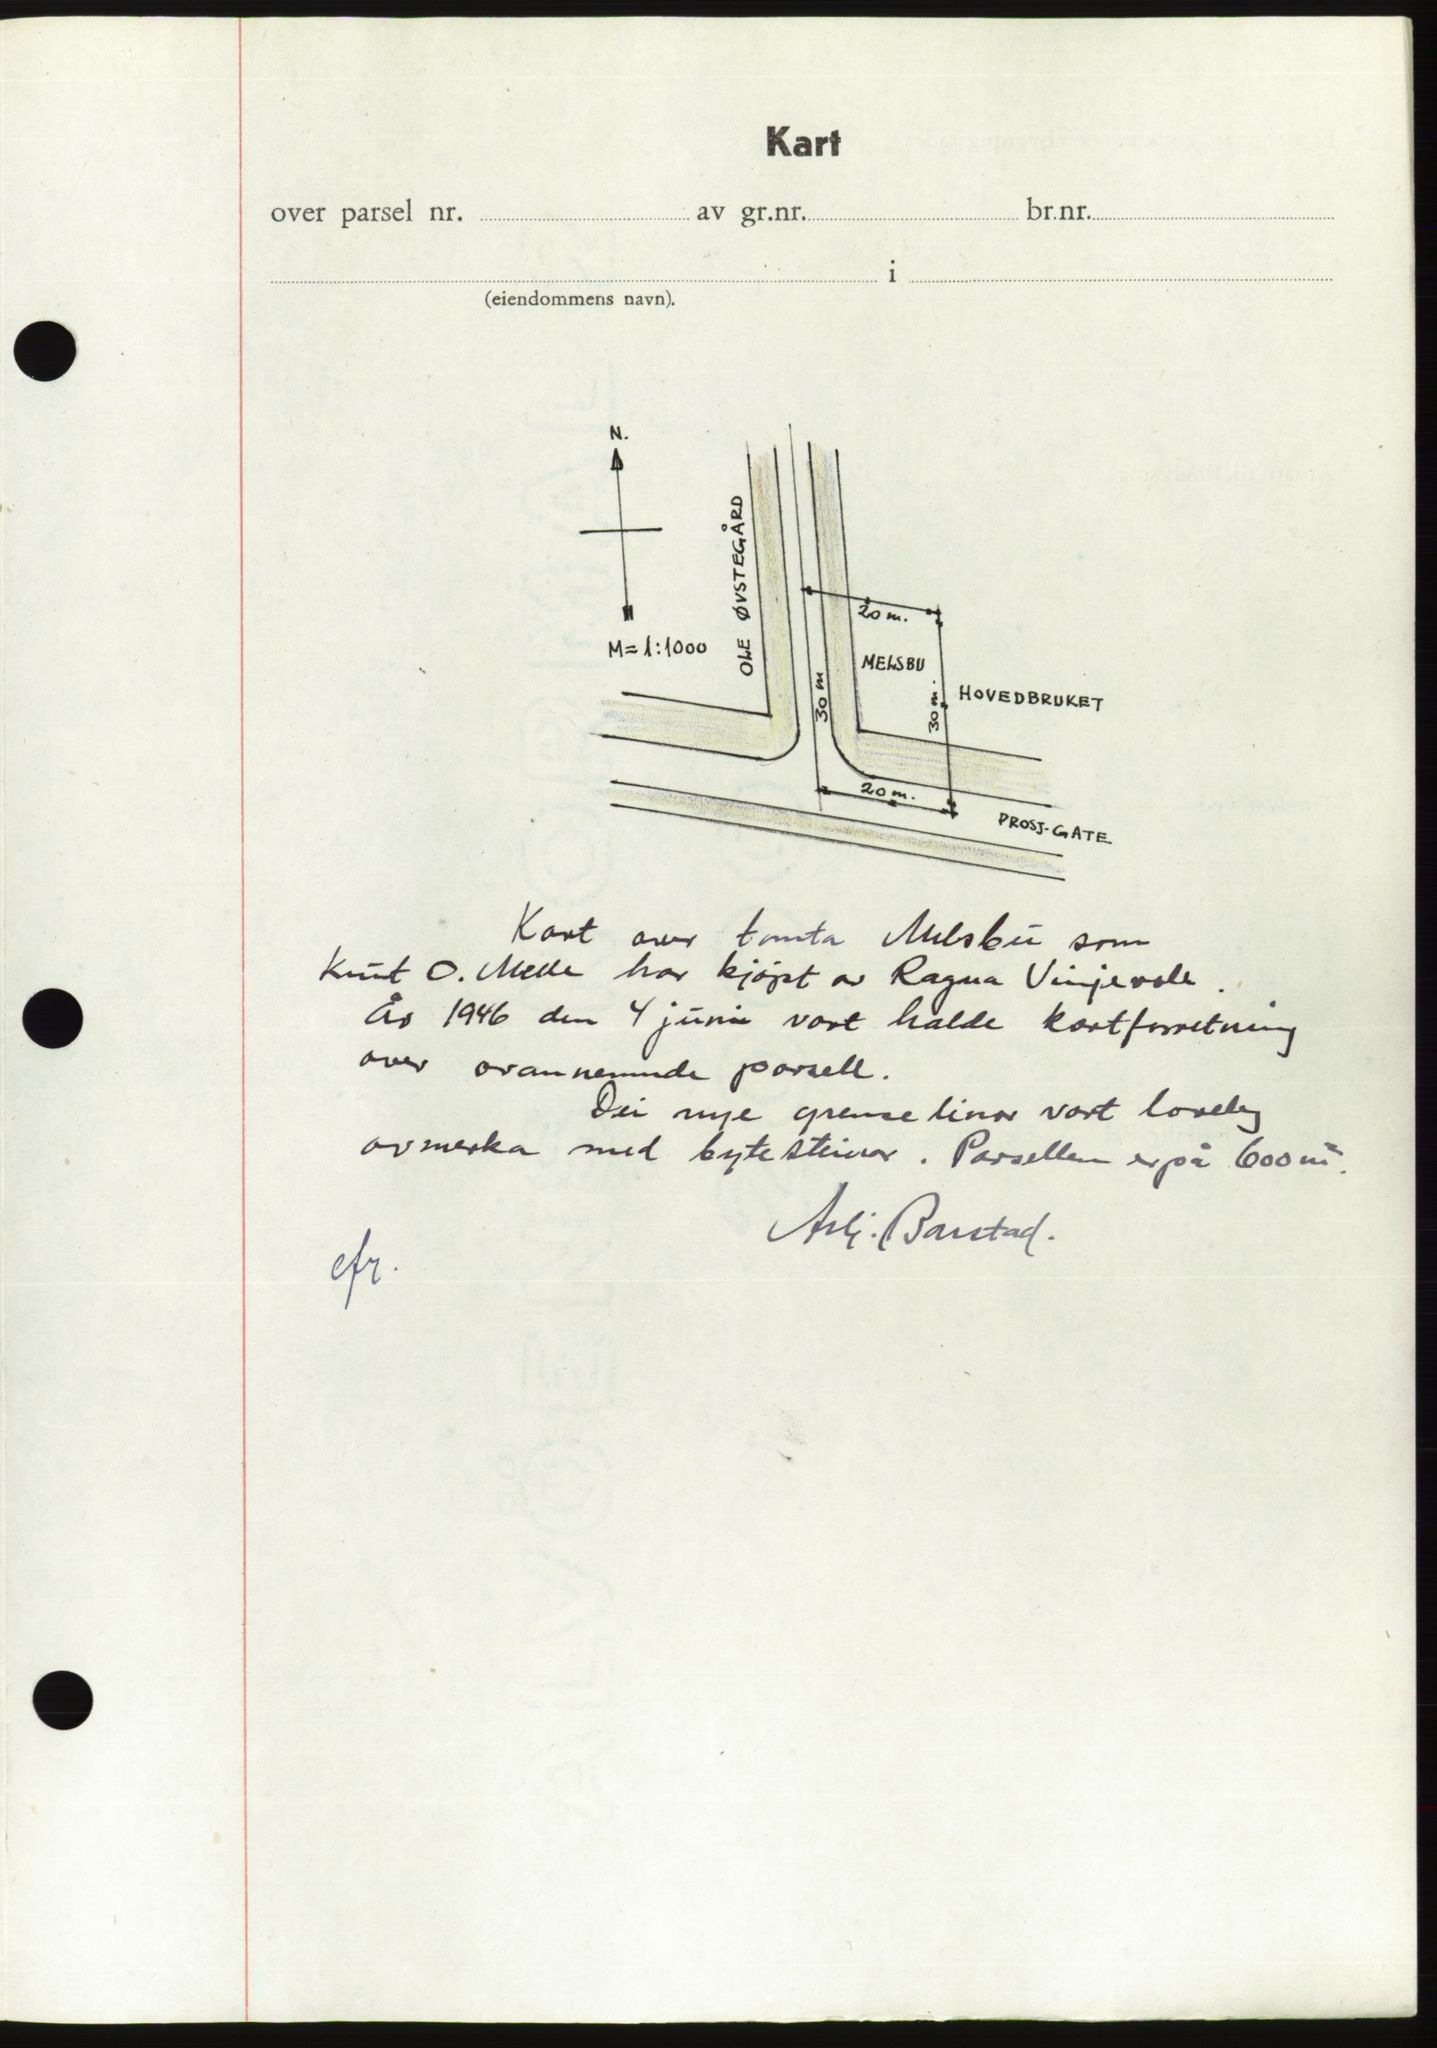 Kart
over parsel nr. av gr.nr. br.nr.
i
(eiendommens navn).
N.
M=1:1000
OLE ØVSTEGÅRD
20 m.
MELSBU
30 m
30 m.
HOVEDBRUKET
20 m.
PROSJ-GATE
Kart over tomta Melsbu som
Knut O. Melle har kjøpt av Ragna Vinjevoll.
År 1946 den 4 juni vart halde kartforretning
over ovannemnde parsell.
Dei nye grenselinor vart loveleg
avmerka med bytesteinar. Parsellen er på 600 m².
Arlj. Barstad.
efr.